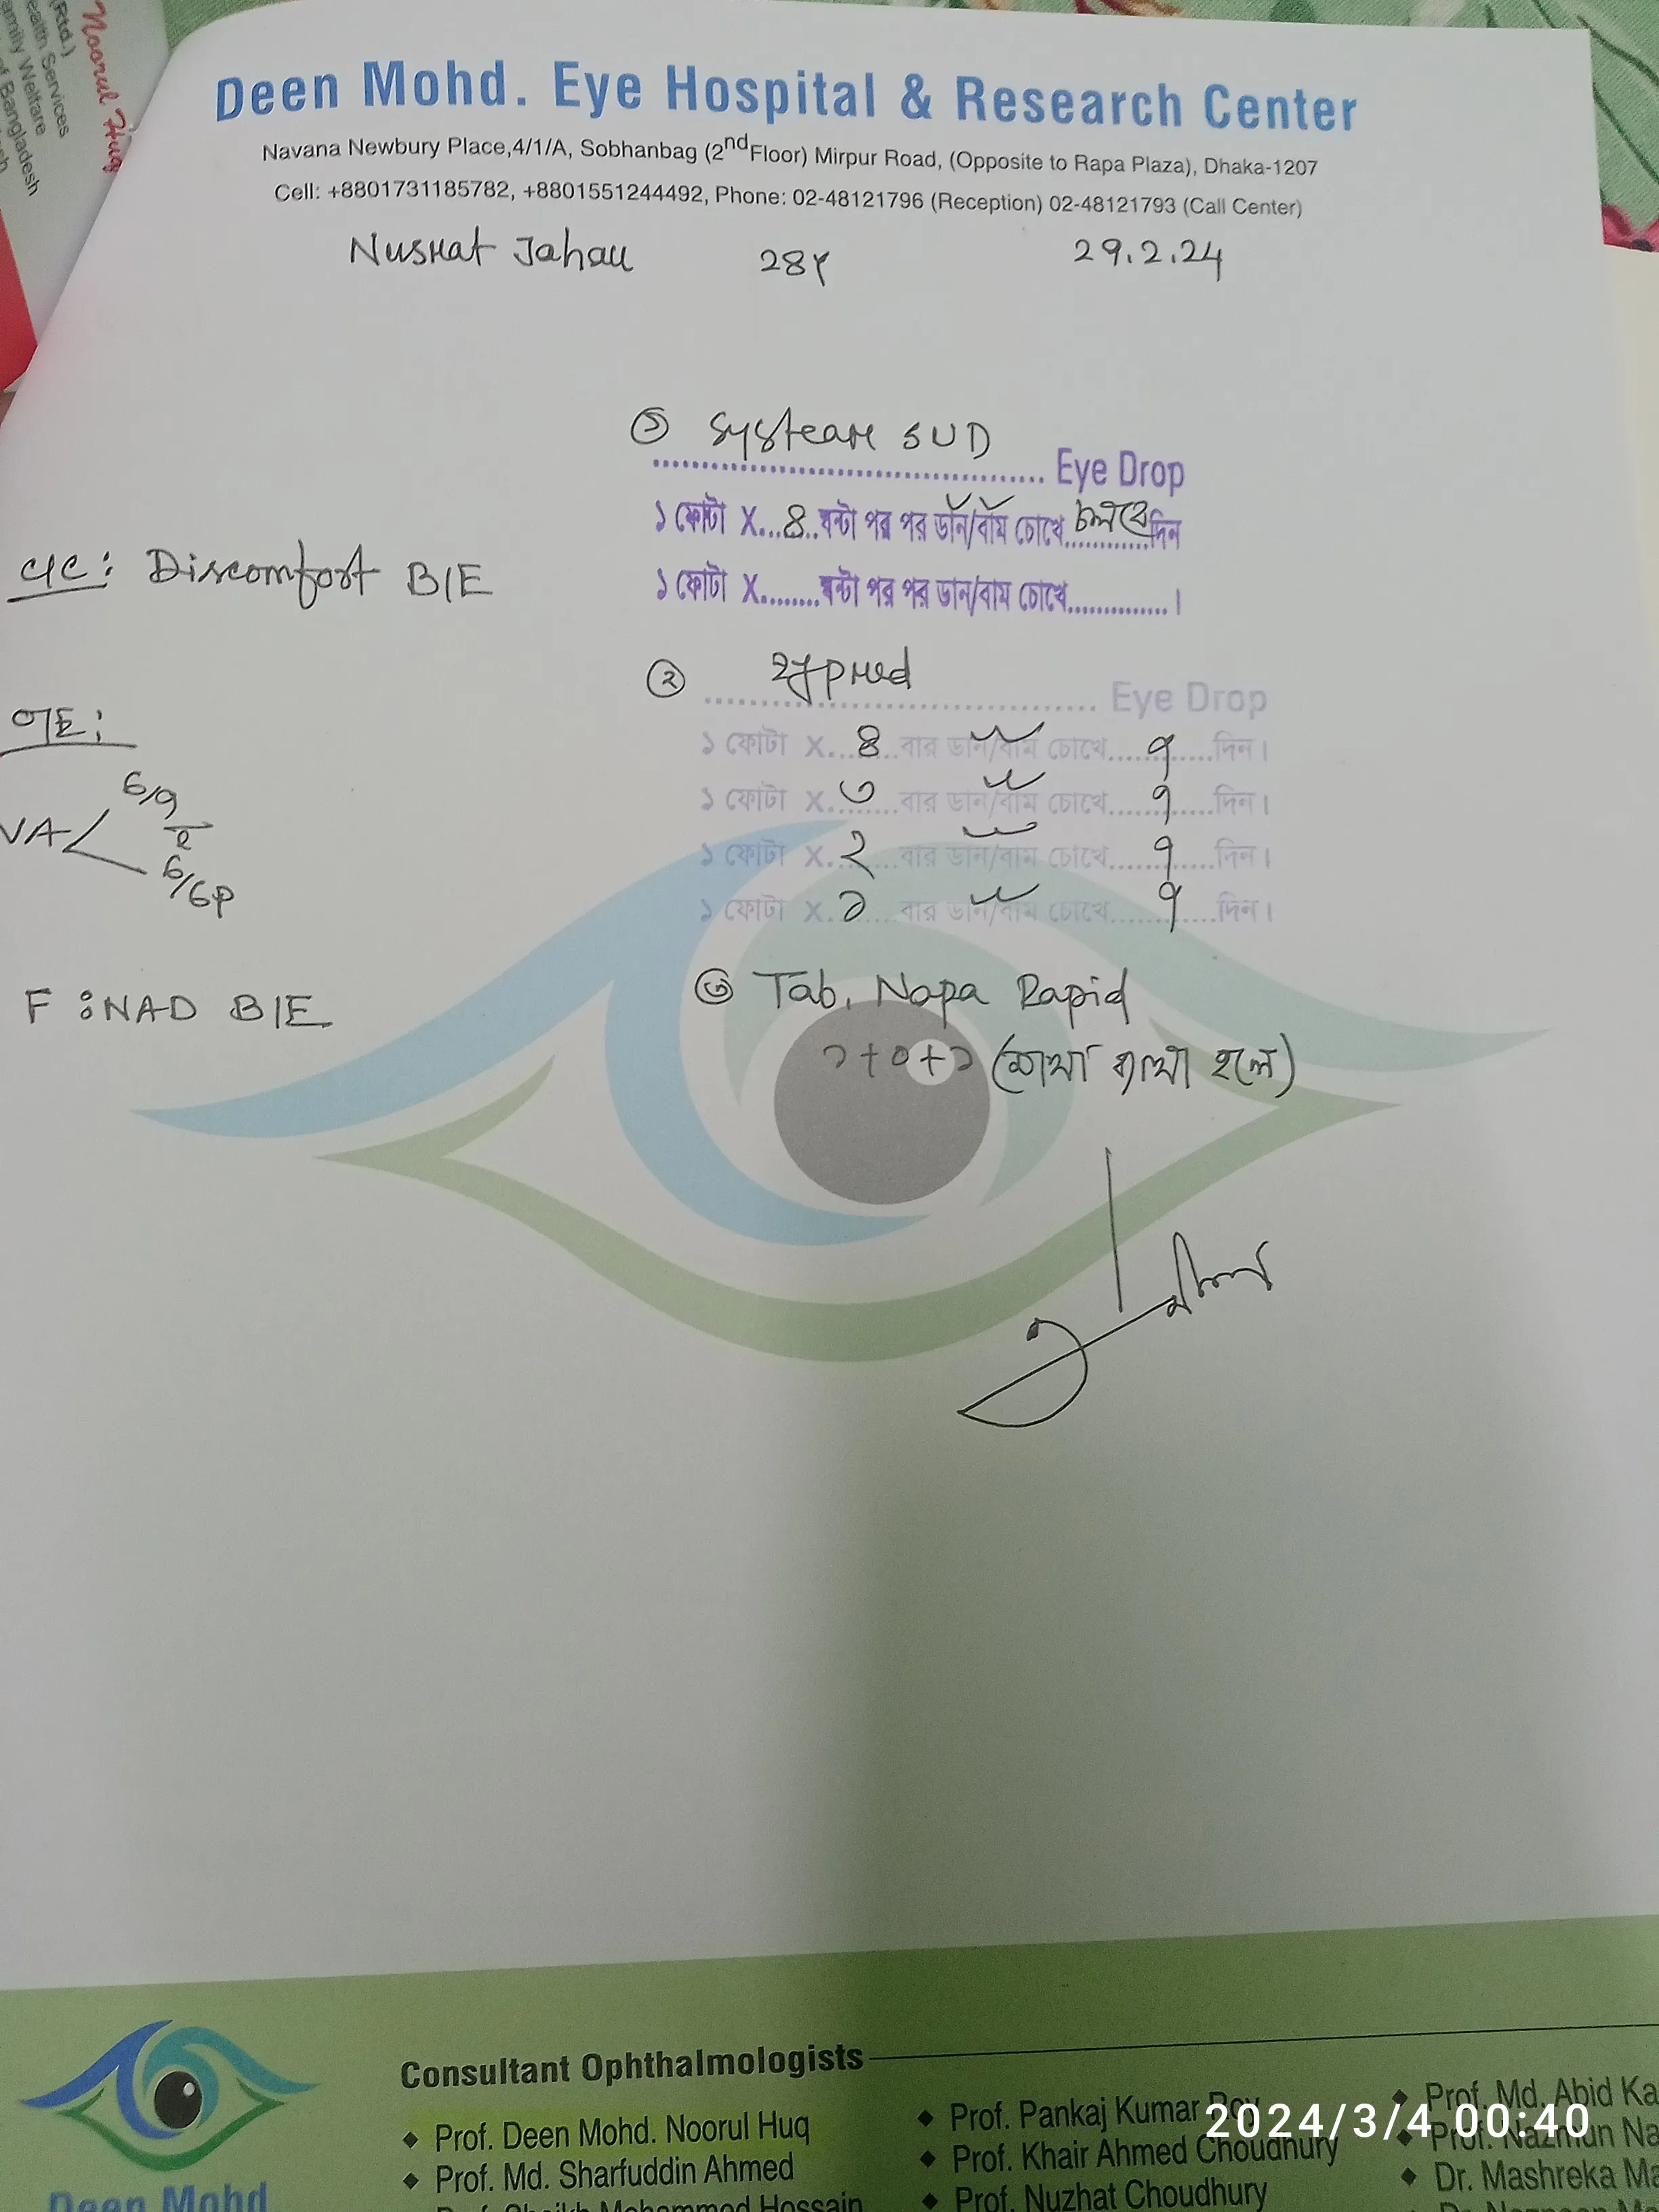 Noorul Huq
(Rtd.)
ealth Services
amily Welfare
of Bangladesh
Deen Mohd. Eye Hospital & Research Center
Navana Newbury Place,4/1/A, Sobhanbag (2nd Floor) Mirpur Road, (Opposite to Rapa Plaza), Dhaka-1207
Cell: +8801731185782, +8801551244492, Phone: 02-48121796 (Reception) 02-48121793 (Call Center)
Nusrat Jahan 28Y 29.2.24
① Systear SUD
Eye Drop
১ ফোটা X...৪..ঘন্টা পর পর ডান/বাম চোখে চলবে দিন
১ ফোটা X.........ঘন্টা পর পর ডান/বাম চোখে..............।
C/C: Discomfort B/E
② Zypred
Eye Drop
১ ফোটা X...৪...বার ডান/বাম চোখে....৭.....দিন।
১ ফোটা X...৩...বার ডান/বাম চোখে....৭.....দিন।
১ ফোটা X...২...বার ডান/বাম চোখে....৭.....দিন।
১ ফোটা X...১...বার ডান/বাম চোখে....৭.....দিন।
O/E:
VA
6/9
6/6P
F : NAD B/E
③ Tab. Napa Rapid
১+০+১ (মাথা ব্যথা হলে)
Consultant Ophthalmologists
Prof. Deen Mohd. Noorul Huq
Prof. Md. Sharfuddin Ahmed
Prof. Sheikh Mohammod Hossain
Prof. Pankaj Kumar Roy
Prof. Khair Ahmed Choudhury
Prof. Nuzhat Choudhury
Prof. Md. Abid Ka
Prof. Nazmun Na
Dr. Mashreka Ma
Deen Mohd
2024/3/4 00:40